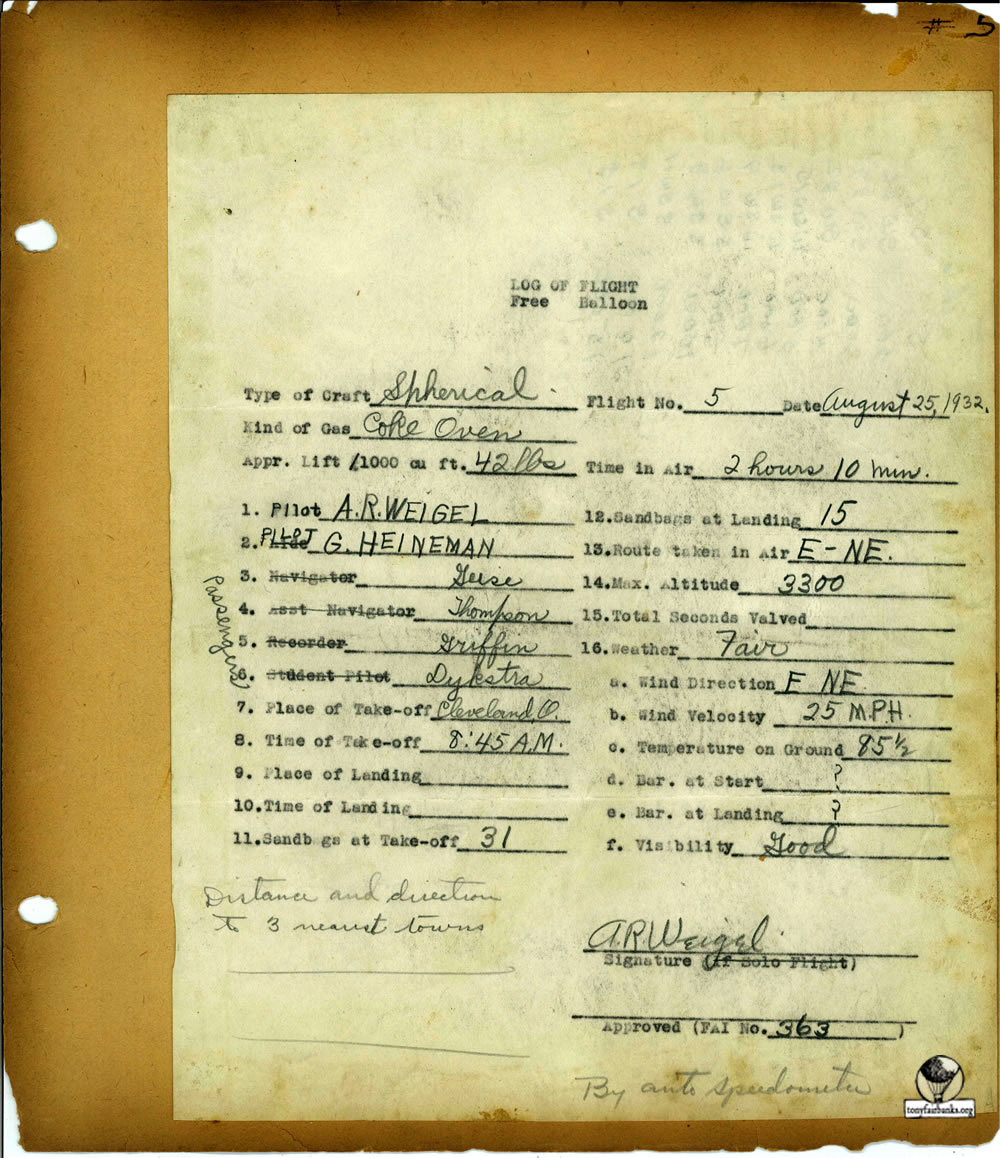 # 5
LOG OF FLIGHT
Free Balloon
Type of Craft Spherical. Flight No. 5 Date August 25, 1932.
Kind of Gas Coke Oven
Appr. Lift /1000 cu ft. 42 lbs Time in Air 2 hours 10 min.
1. Pilot A.R. WEIGEL
12.Sandbags at Landing 15
2. PILOT G. HEINEMAN
13.Route taken in Air E-NE.
Passengers
3. Navigator Geise
14.Max. Altitude 3300
4. Asst Navigator Thompson
15.Total Seconds Valved
5. Recorder Griffin
16.Weather Fair
6. Student Pilot Dykstra
a. Wind Direction E NE.
7. Place of Take-off Cleveland, O.
b. Wind Velocity 25 M.P.H.
8. Time of Take-off 8:45 A.M.
c. Temperature on Ground 85½
9. Place of Landing
d. Bar. at Start ?
10.Time of Landing
e. Bar. at Landing ?
11.Sandbags at Take-off 31
f. Visibility Good
Distance and direction
to 3 nearest towns
A.R. Weigel
Signature (If Solo Flight)
Approved (FAI No. 363 )
By auto speedometer
tonyfairbanks.org